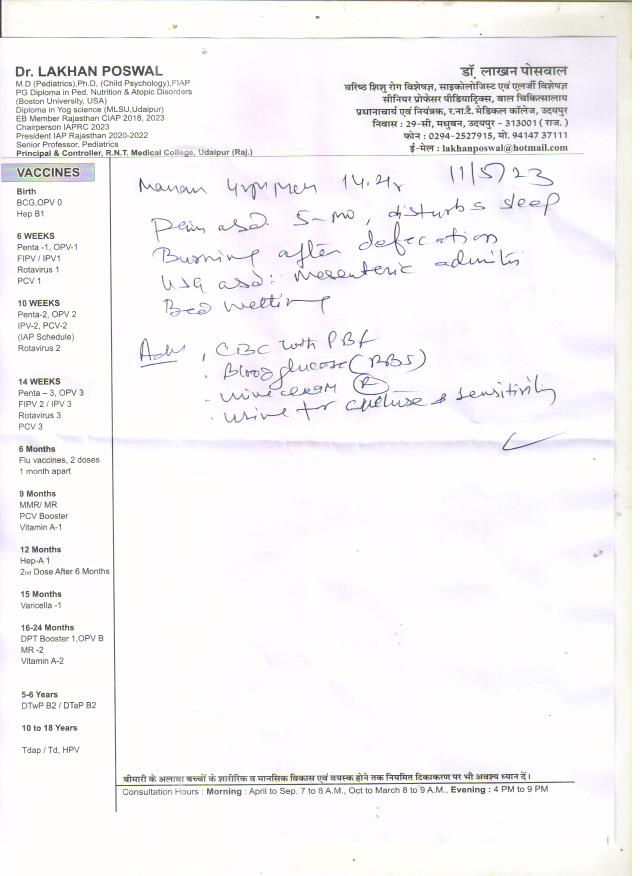 Dr. LAKHAN POSWAL
M.D (Pediatrics),Ph.D, (Child Psychology),FIAP
PG Diploma in Ped. Nutrition & Atopic Disorders
(Boston University, USA)
Diploma in Yog science (MLSU,Udaipur)
EB Member Rajasthan CIAP 2018, 2023
Chairperson IAPRC 2023
President IAP Rajasthan 2020-2022
Senior Professor, Pediatrics
Principal & Controller, R.N.T. Medical College, Udaipur (Raj.)
डॉ. लाखन पोसवाल
वरिष्ठ शिशु रोग विशेषज्ञ, साइकोलोजिस्ट एवं एलर्जी विशेषज्ञ
सीनियर प्रोफेसर पीडियाट्रिक्स, बाल चिकित्सालय
प्रधानाचार्य एवं नियंत्रक, र.ना.टै. मेडिकल कॉलेज, उदयपुर
निवास : 29-सी, मधुबन, उदयपुर - 313001 ( राज. )
फोन : 0294-2527915, मो. 94147 37111
ई-मेल : lakhanposwal@hotmail.com
VACCINES
Birth
BCG,OPV 0
Hep B1
6 WEEKS
Penta -1, OPV-1
FIPV / IPV1
Rotavirus 1
PCV 1
10 WEEKS
Penta-2, OPV 2
IPV-2, PCV-2
(IAP Schedule)
Rotavirus 2
14 WEEKS
Penta – 3, OPV 3
FIPV 2 / IPV 3
Rotavirus 3
PCV 3
6 Months
Flu vaccines, 2 doses
1 month apart
9 Months
MMR/ MR
PCV Booster
Vitamin A-1
12 Months
Hep-A 1
2nd Dose After 6 Months
15 Months
Varicella -1
16-24 Months
DPT Booster 1,OPV B
MR -2
Vitamin A-2
5-6 Years
DTwP B2 / DTaP B2
10 to 18 Years
Tdap / Td, HPV
Manan 14. yr 11/5/23
Pain abd. 5-mo, disturbs sleep
Burning after defecation
USG abd: Mesenteric
Bed wetting
Adv , CBC with PBF
. Blood glucose (RBS)
- Urine exam (R)
. Urine for culture & sensitivity
बीमारी के अलावा बच्चों के शारीरिक व मानसिक विकास एवं वयस्क होने तक नियमित टिकाकरण पर भी अवश्य ध्यान दें।
Consultation Hours : Morning : April to Sep. 7 to 8 A.M., Oct to March 8 to 9 A.M., Evening : 4 PM to 9 PM